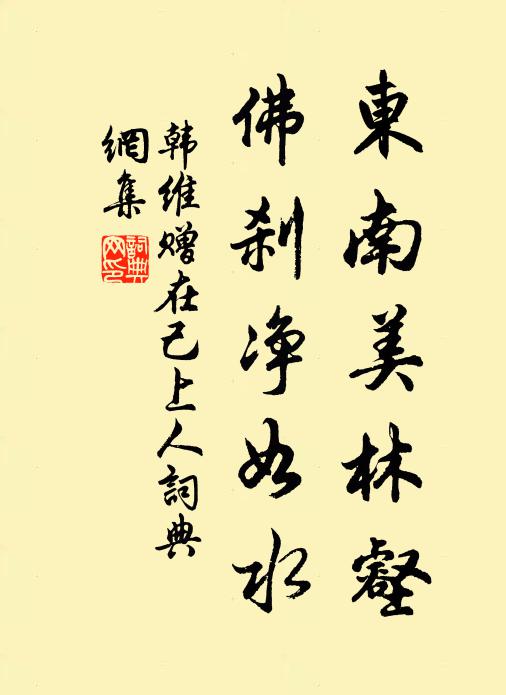 東南美林壑
佛刹净如水
韩维赠在己上人詞典
網集
詞典
网印